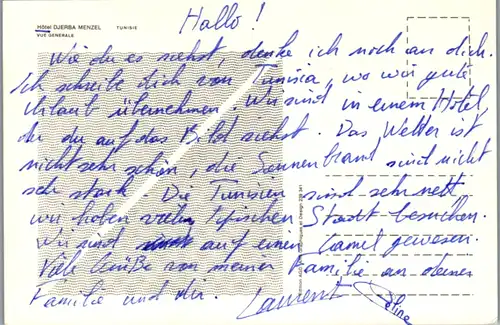 Hôtel DJERBA MENZEL TUNISIE
VUE GENERALE
Hallo!
Wie du es siehst, denke ich noch an dich.
Ich schreibe dich von Tunisia, wo wir gute
Urlaub übernehmen. Wir sind in einem Hotel,
du du auf das Bild siehst. Das Wetter ist
nicht sehr schön, die Sonnenbrand sind nicht
seh stark. Die Tunisien sind sehr nett
wir haben vielen typischen Stadt besuchen.
Wir sind auf einen Camel gewesen.
Viele Grüße von meiner Familie an deiner
Familie und dir. Laurent